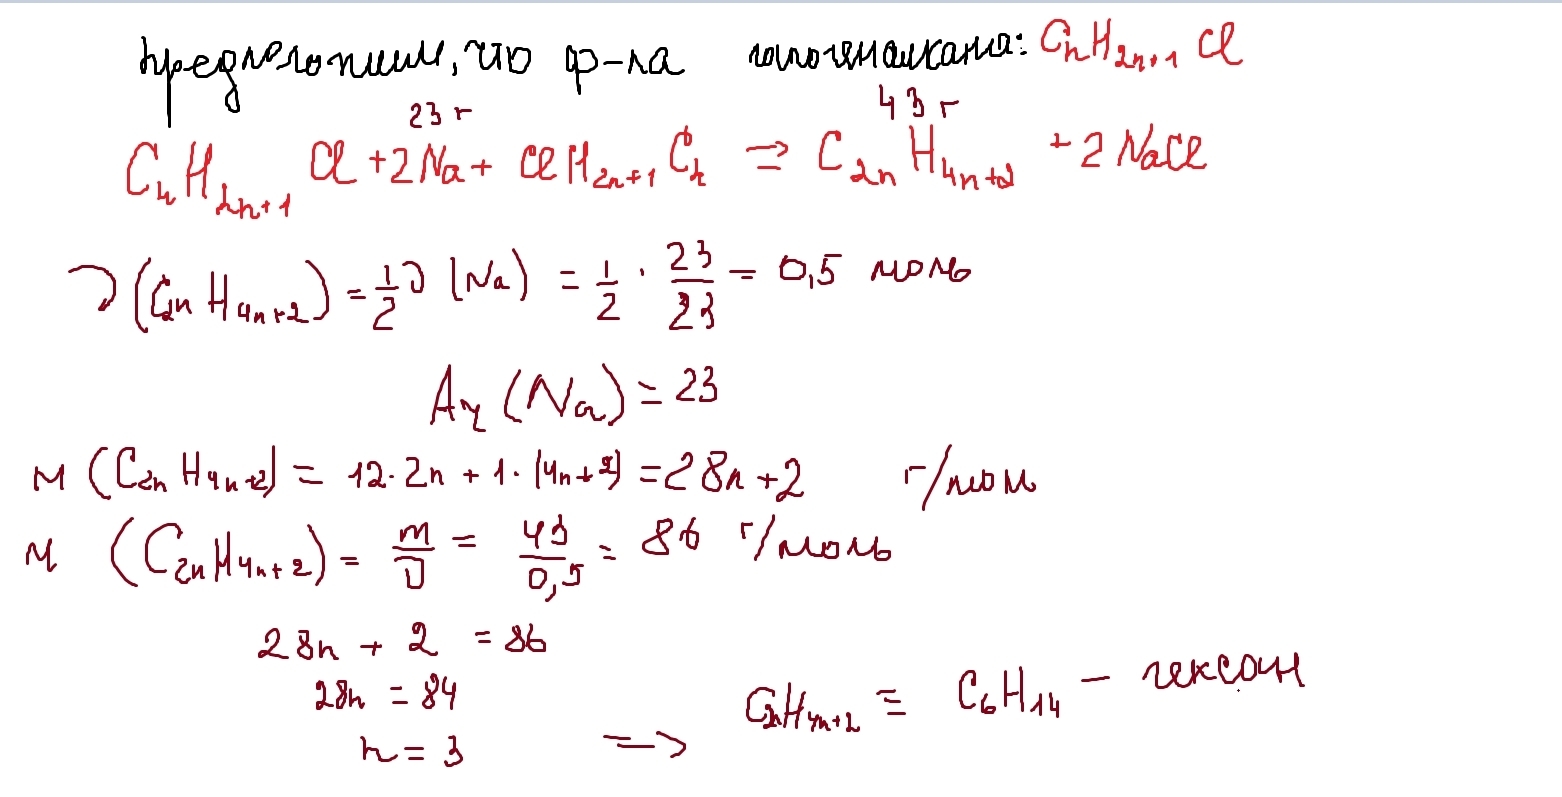 Предположим, что ф-ла галогеналкана: CnH2n+1 Cl
23 г 43 г
CnH2n+1 Cl + 2Na + ClH2n+1Cn => C2nH4n+2 + 2NaCl
ν(C2nH4n+2) = 1/2 ν(Na) = 1/2 · 23/23 = 0,5 моль
Ar (Na) = 23
M (C2nH4n+2) = 12·2n + 1·(4n+2) = 28n+2 г/моль
M (C2nH4n+2) = m/ν = 43/0,5 = 86 г/моль
28n + 2 = 86
28n = 84
n = 3 => C2nH4n+2 = C6H14 – гексан